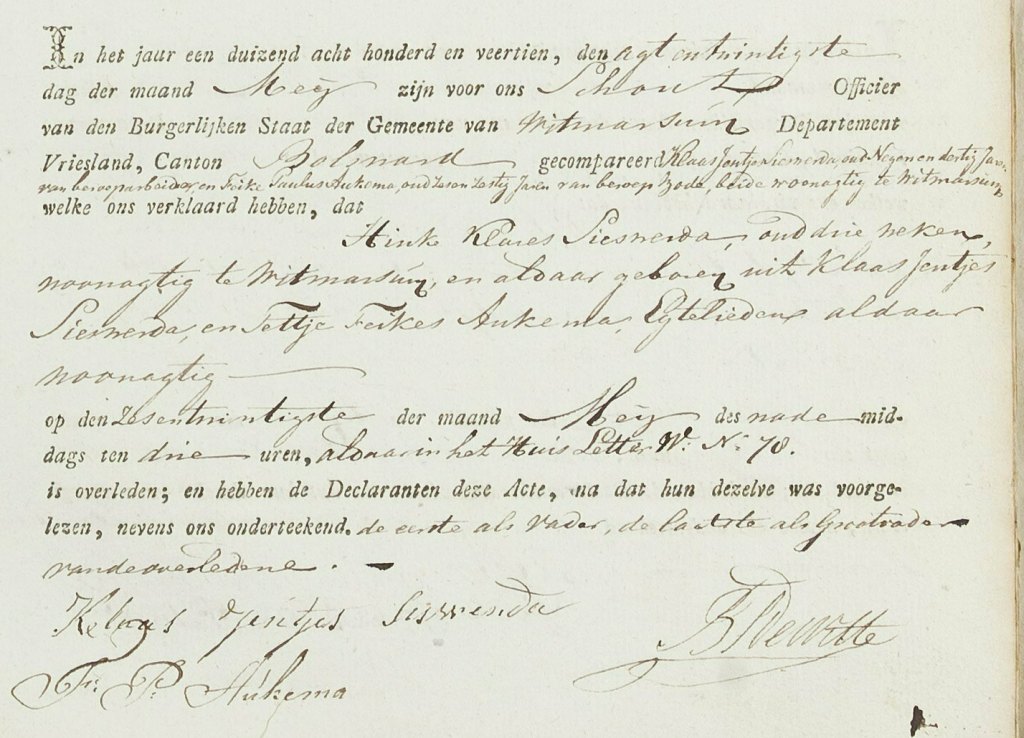 In het jaar een duizend acht honderd en veertien, den agt en twintigste
dag der maand Meij zijn voor ons Schout Officier
van den Burgerlijken Staat der Gemeente van Witmarsum Departement
Vriesland, Canton Bolsward gecompareerd Klaas Jentjes Sierwerda, oud Negen en dertig Jaren
van beroep arbeider, en Feike Paulus Aukema, oud Zes en Zestig Jaren van beroep Bode, beide woonagtig te Witmarsum
welke ons verklaard hebben, dat
Hinke Klases Sierwerda, oud drie weken,
woonagtig te Witmarsum, en aldaar geboren uit Klaas Jentjes
Sierwerda, en Tettje Feikes Aukema, Egtelieden aldaar
woonagtig
op den Zesentwintigste der maand Meij des nade mid-
dags ten drie uren, aldaar in het Huis Letter W. No. 78.
is overleden; en hebben de Declaranten deze Acte, na dat hun dezelve was voorge-
lezen, nevens ons onderteekend. de eerste als Vader, de laatste als Grootvader
van de overledene.
Klaas Jentjes Sierwerda
Fe. Ps. Aukema